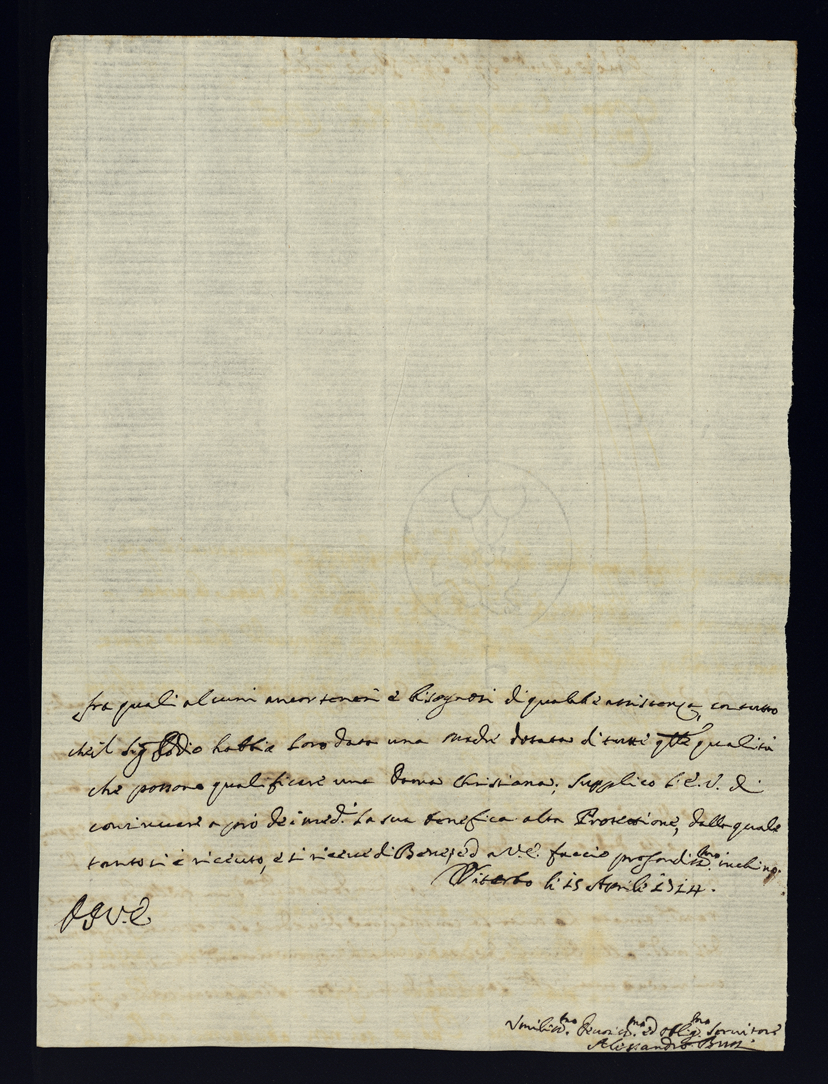 fra quali alcuni ancor teneri e bisognosi di qualche assistenza, con tutto
che il Sig.r Iddio habbia loro data una madre dotata di tutte q.lle qualità
che possono qualificare una Dama Christiana; supplico l'E. V. di
continuare a prò dei med.i la sua benefica alta Protezione, dalla quale
tanto si è riceuto, e si riceve di Bene; ed a V. E. faccio profondis.mo inchino.
Viterbo li 15 Aprile 1714.
D. S. V. E.
Umiliss.mo Devotiss.mo ed Oblig.mo Servitore
Alessandro